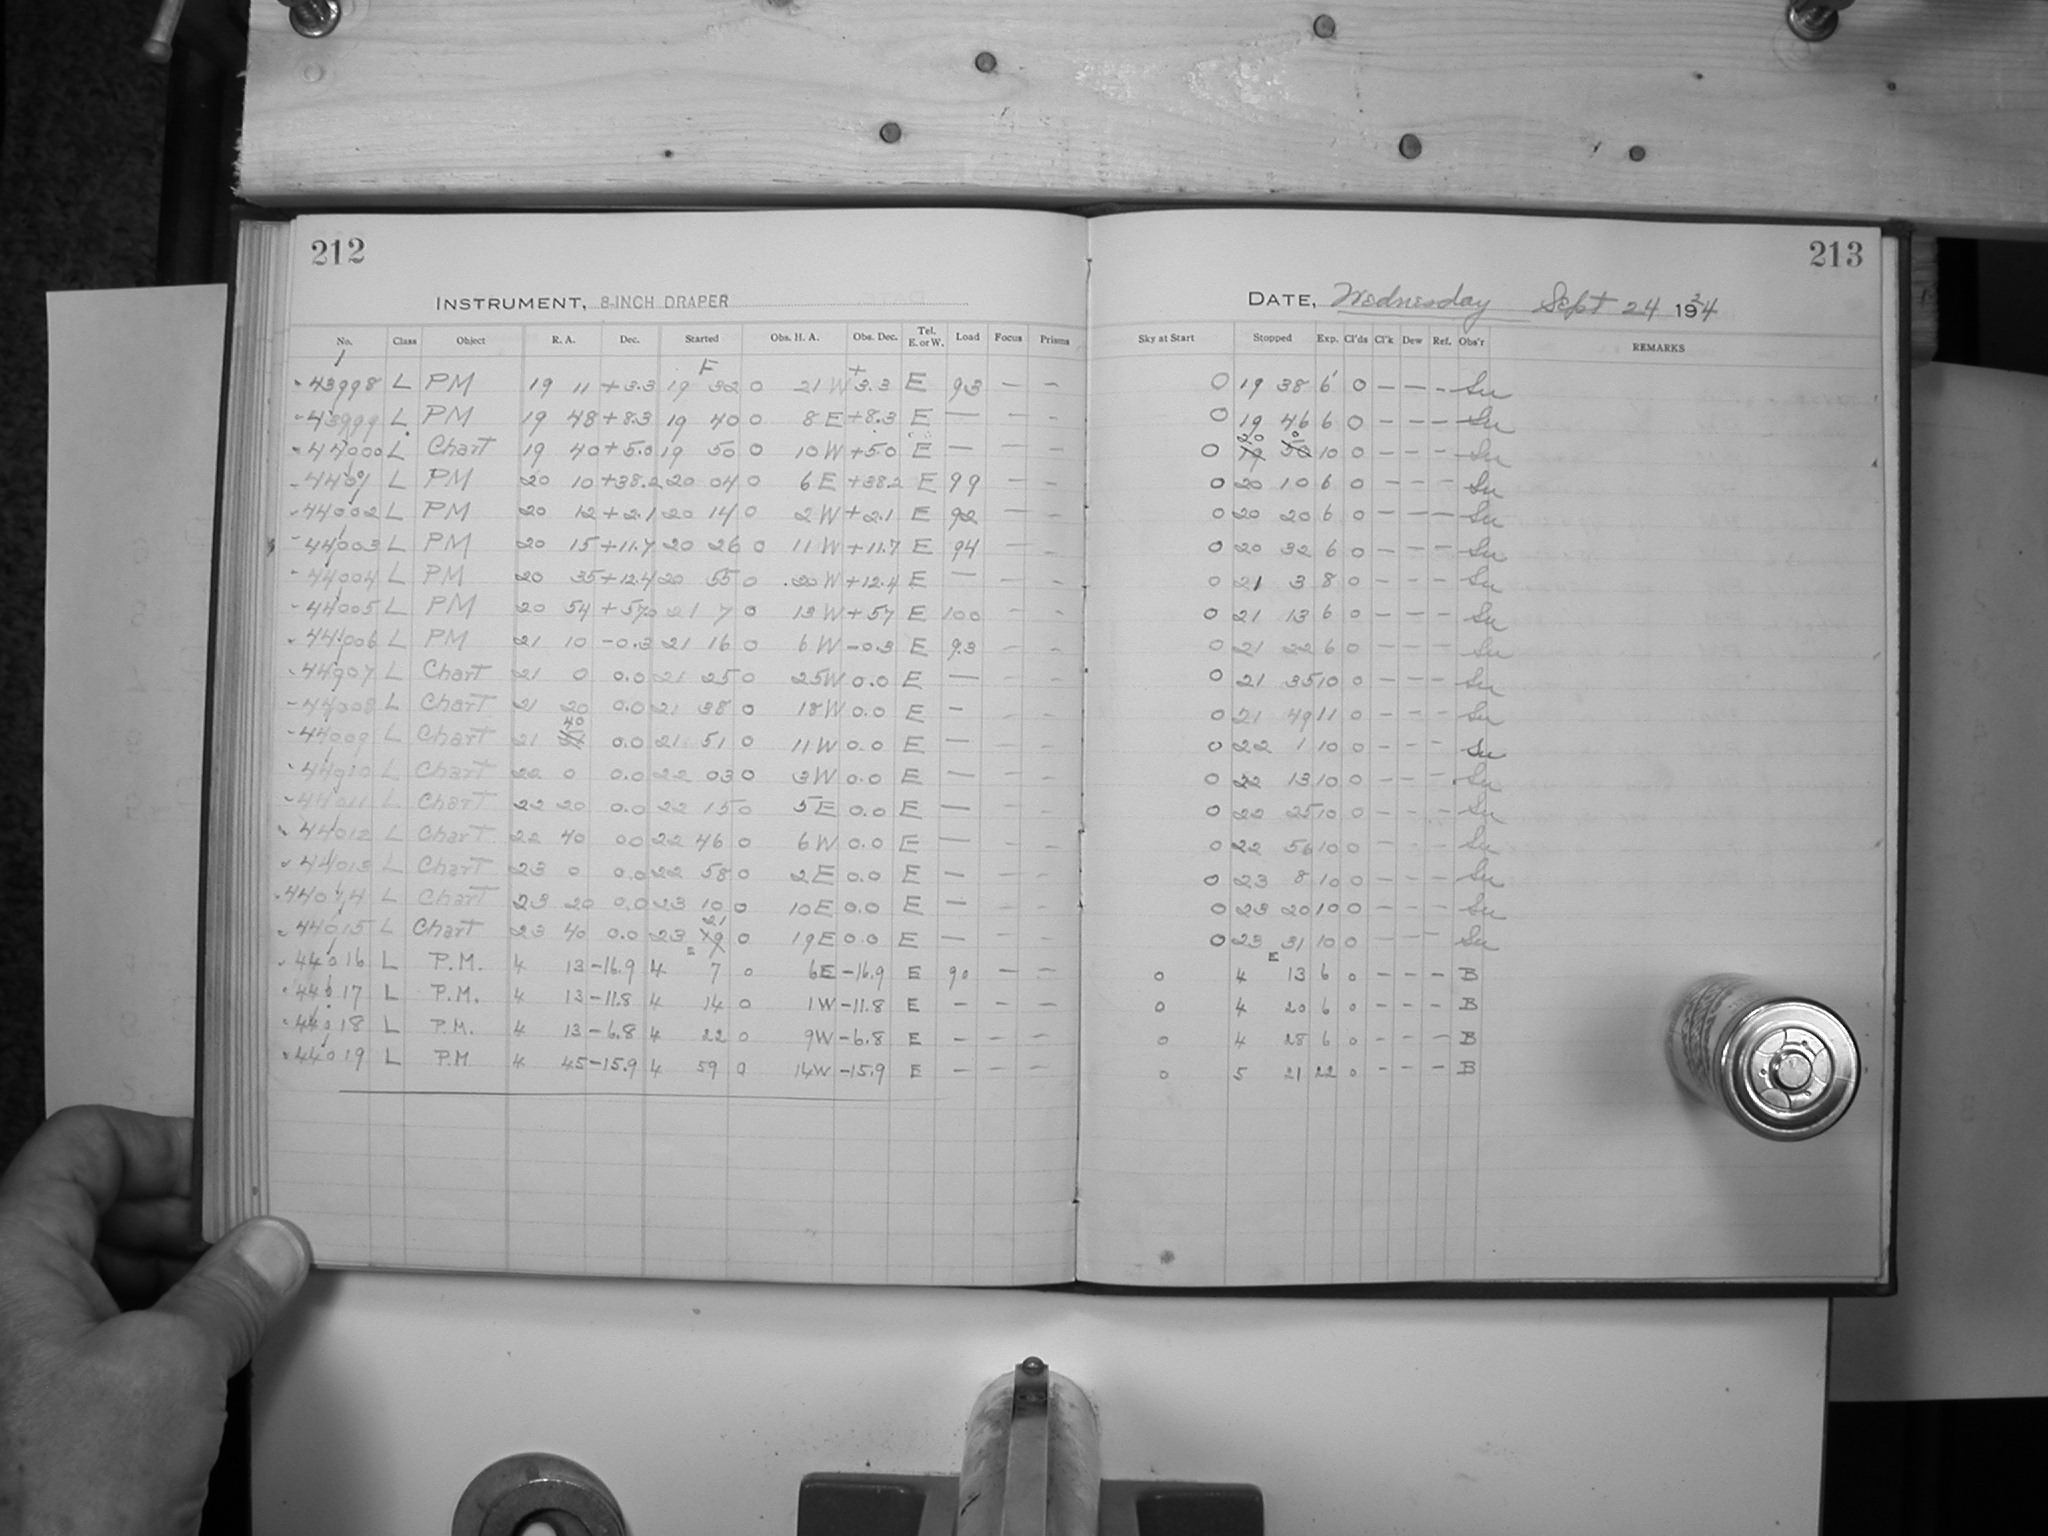 212
INSTRUMENT, 8-INCH DRAPER
No. Class Object R. A. Dec. Started Obs. H. A. Obs. Dec. Tel. E. or W. Load Focus Prisms
F
43998 L PM 19 11 +3.3 19 32 0 21 W +3.3 E 93 — —
43999 L PM 19 48 +8.3 19 40 0 8 E +8.3 E — — —
44000 L Chart 19 40 +5.0 19 50 0 10 W +5.0 E — — —
44001 L PM 20 10 +38.2 20 04 0 6 E +38.2 E 99 — —
44002 L PM 20 12 +2.1 20 14 0 2 W +2.1 E 92 — —
44003 L PM 20 15 +11.7 20 26 0 11 W +11.7 E 94 — —
44004 L PM 20 35 +12.4 20 55 0 20 W +12.4 E — — —
44005 L PM 20 54 +57.0 21 7 0 13 W +57 E 100 — —
44006 L PM 21 10 -0.3 21 16 0 6 W -0.3 E 93 — —
44007 L Chart 21 0 0.0 21 25 0 25 W 0.0 E — — —
44008 L Chart 21 20 0.0 21 38 0 18 W 0.0 E — — —
44009 L Chart 21 40 0.0 21 51 0 11 W 0.0 E — — —
44010 L Chart 22 0 0.0 22 03 0 3 W 0.0 E — — —
44011 L Chart 22 20 0.0 22 15 0 5 E 0.0 E — — —
44012 L Chart 22 40 0.0 22 46 0 6 W 0.0 E — — —
44013 L Chart 23 0 0.0 22 58 0 2 E 0.0 E — — —
44014 L Chart 23 20 0.0 23 10 0 10 E 0.0 E — — —
44015 L Chart 23 40 0.0 23 21 0 19 E 0.0 E — — —
E
44016 L P.M. 4 13 -16.9 4 7 0 6E -16.9 E 90 — —
44017 L P.M. 4 13 -11.8 4 14 0 1W -11.8 E — — —
44018 L P.M. 4 13 -6.8 4 22 0 9W -6.8 E — — —
44019 L P.M 4 45 -15.9 4 59 0 14W -15.9 E — — —
213
DATE, Wednesday Sept 24 1924
Sky at Start Stopped Exp. Cl'ds Cl'k Dew Ref. Obs'r REMARKS
0 19 38 6 0 — — — Su
0 19 46 6 0 — — — Su
0 20 0 10 0 — — — Su
0 20 10 6 0 — — — Su
0 20 20 6 0 — — — Su
0 20 32 6 0 — — — Su
0 21 3 8 0 — — — Su
0 21 13 6 0 — — — Su
0 21 22 6 0 — — — Su
0 21 35 10 0 — — — Su
0 21 49 11 0 — — — Su
0 22 1 10 0 — — — Su
0 22 13 10 0 — — — Su
0 22 25 10 0 — — — Su
0 22 56 10 0 — — — Su
0 23 8 10 0 — — — Su
0 23 20 10 0 — — — Su
0 23 31 10 0 — — — Su
E
0 4 13 6 0 — — — B
0 4 20 6 0 — — — B
0 4 28 6 0 — — — B
0 5 21 22 0 — — — B